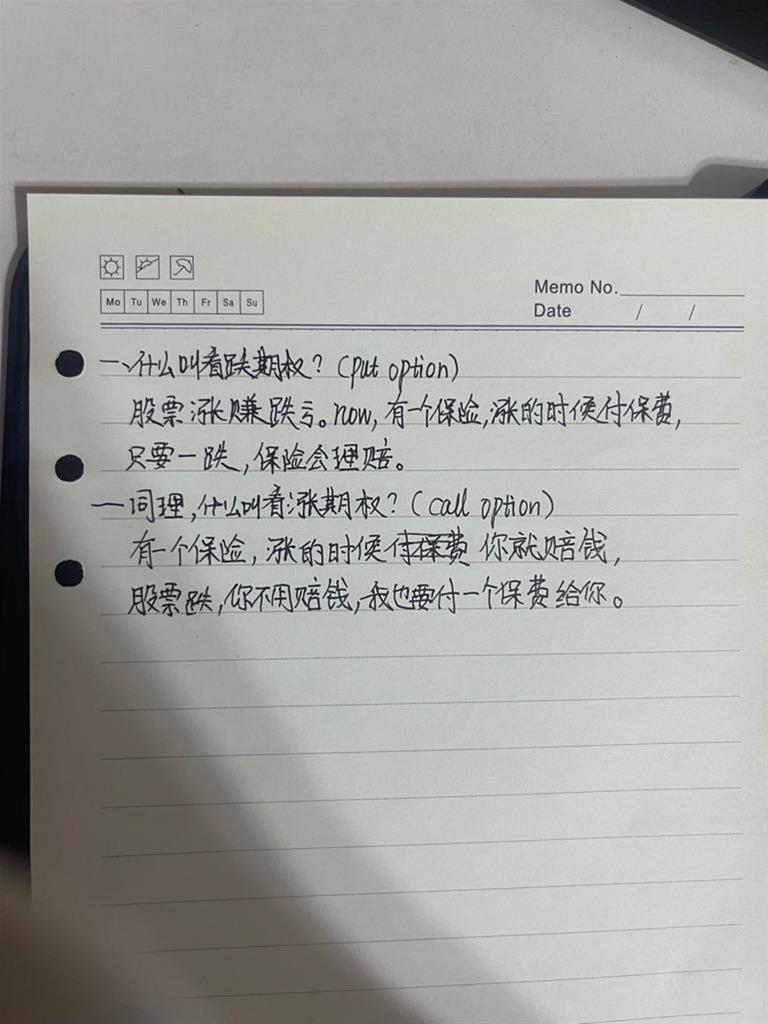 Mo Tu We Th Fr Sa Su
Memo No.
Date / /
一、什么叫看跌期权？(put option)
股票涨赚跌亏。now, 有一个保险,涨的时候付保费,
只要一跌,保险会理赔。
一同理,什么叫看涨期权？(call option)
有一个保险,涨的时候付保费 你就赔钱,
股票跌,你不用赔钱,我也要付一个保费给你。